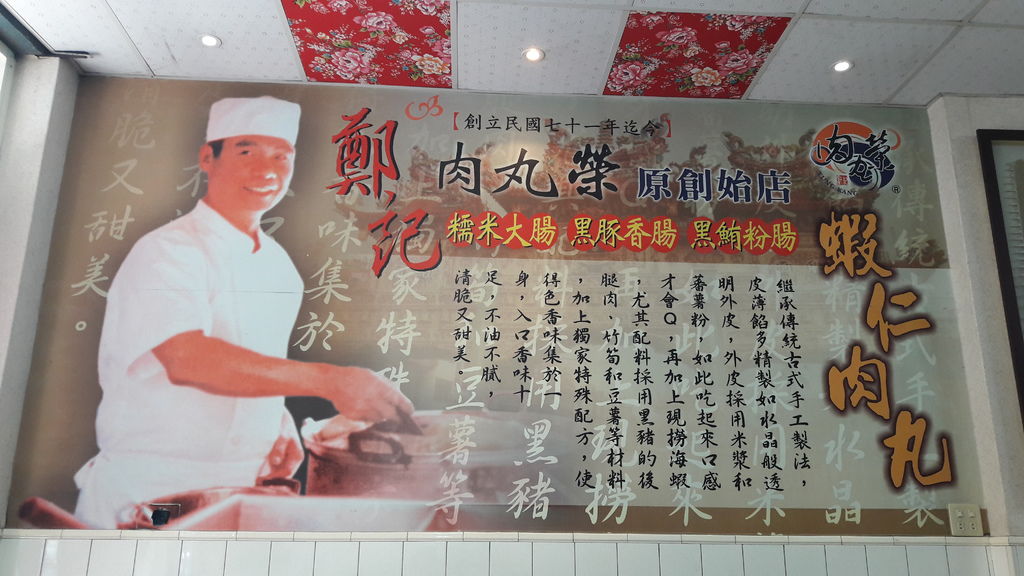 鄭記
【創立民國七十一年迄今】
肉丸榮 原創始店
糯米大腸 黑豚香腸 黑鮪粉腸
肉丸榮
®
蝦仁肉丸
繼承傳統古式手工製法，
皮薄餡多精製如水晶般透
明外皮，外皮採用米漿和
蕃薯粉，如此吃起來口感
才會Q，再加上現撈海蝦
，尤其配料採用黑豬的後
腿肉、竹筍和豆薯等材料
，加上獨家特殊配方，使
得色香味集於一
身，入口香味十
足，不油不膩，
清脆又甜美。